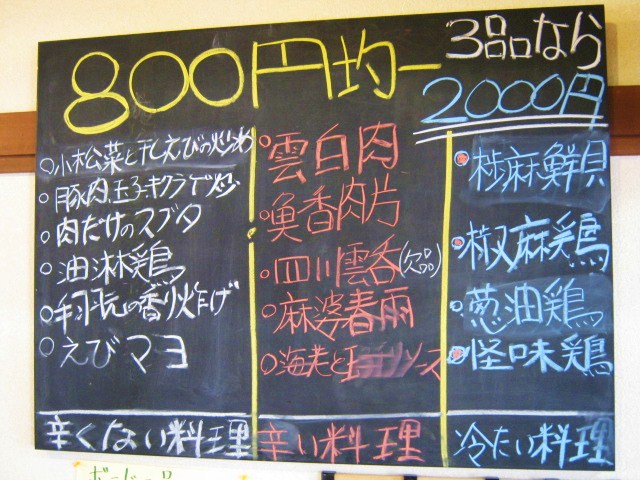 800円均一
3品なら
2000円
小松菜と干しえびの炒め
豚肉玉子キクラゲ炒
肉だけのスブタ
油淋鶏
手羽元の香り炸げ
えびマヨ
辛くない料理
雲白肉
魚香肉片
四川雲呑(欠品)
麻婆春雨
海老と玉子チリソース
辛い料理
椒麻鮮貝
椒麻鶏
葱油鶏
怪味鶏
冷たい料理